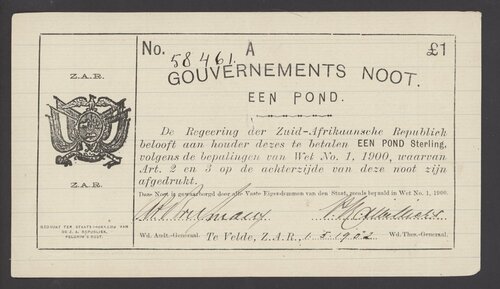 No. 58461. A £1
GOUVERNEMENTS NOOT.
EEN POND.
Z.A.R.
De Regeering der Zuid-Afrikaansche Republiek
belooft aan houder dezes te betalen EEN POND Sterling,
volgens de bepalingen van Wet No. 1, 1900, waarvan
Art. 2 en 3 op de achterzijde van deze noot zijn
afgedrukt.
Z.A.R.
Deze Noot is gewaarborgd door alle Vaste Eigendommen van den Staat, zooals bepaald in Wet No. 1, 1900.
GEDRUKT TER STAATS-DRUKKERIJ VAN
DE Z. A. REPUBLIEK,
PELGRIM'S RUST.
Wd. Audt.-Generaal. Te Velde, Z.A.R., 1 5 1902 Wd. Thes.-Generaal.